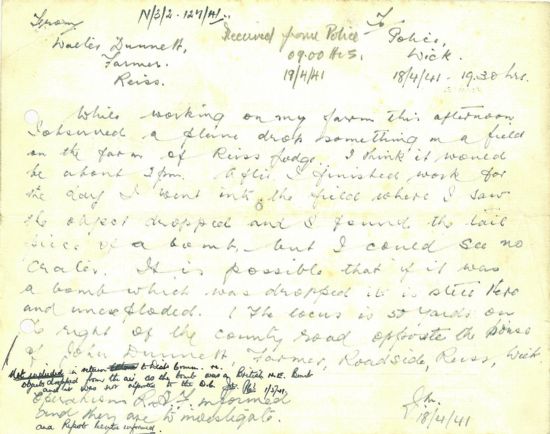 N/3/2 - 127/41.
From
Walter Dunnett,
Farmer.
Reiss.
Received from Police
09.00 Hrs.
19/4/41
To
Police,
Wick.
18/4/41 - 19.30 hrs.
While working on my farm this afternoon
I observed a plane drop something in a field
on the farm of Reiss Lodge. I think it would
be about 3pm. After I finished work for
the day I went into the field where I saw
the object dropped and I found the tail
piece of a bomb, but I could see no
crater. It is possible that if it was
a bomb which was dropped it is still there
and unexploded. (The locus is 50 yards on
to right of the county road opposite the house
of John Dunnett, Farmer, Roadside, Reiss, Wick.
Not included in return
objects dropped from the air, as the bomb was a British H.E. Bomb
and was not reported to the
Operations R.A.F. informed
and they are to investigate.
and Report
18/4/41